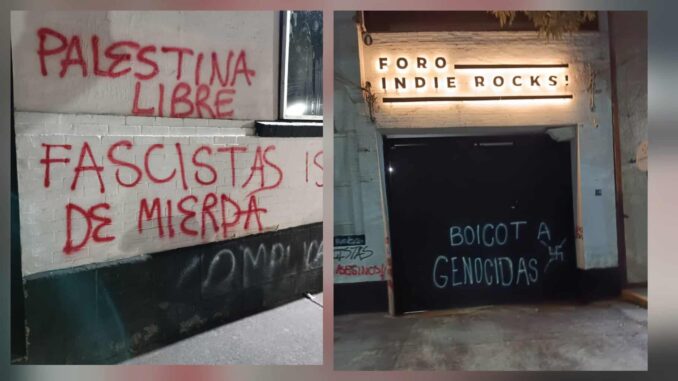 PALESTINA
LIBRE
FASCISTAS IS
DE MIERDA
OMPLICA
FORO
INDIE ROCKS!
BOICOT A
GENOCIDAS